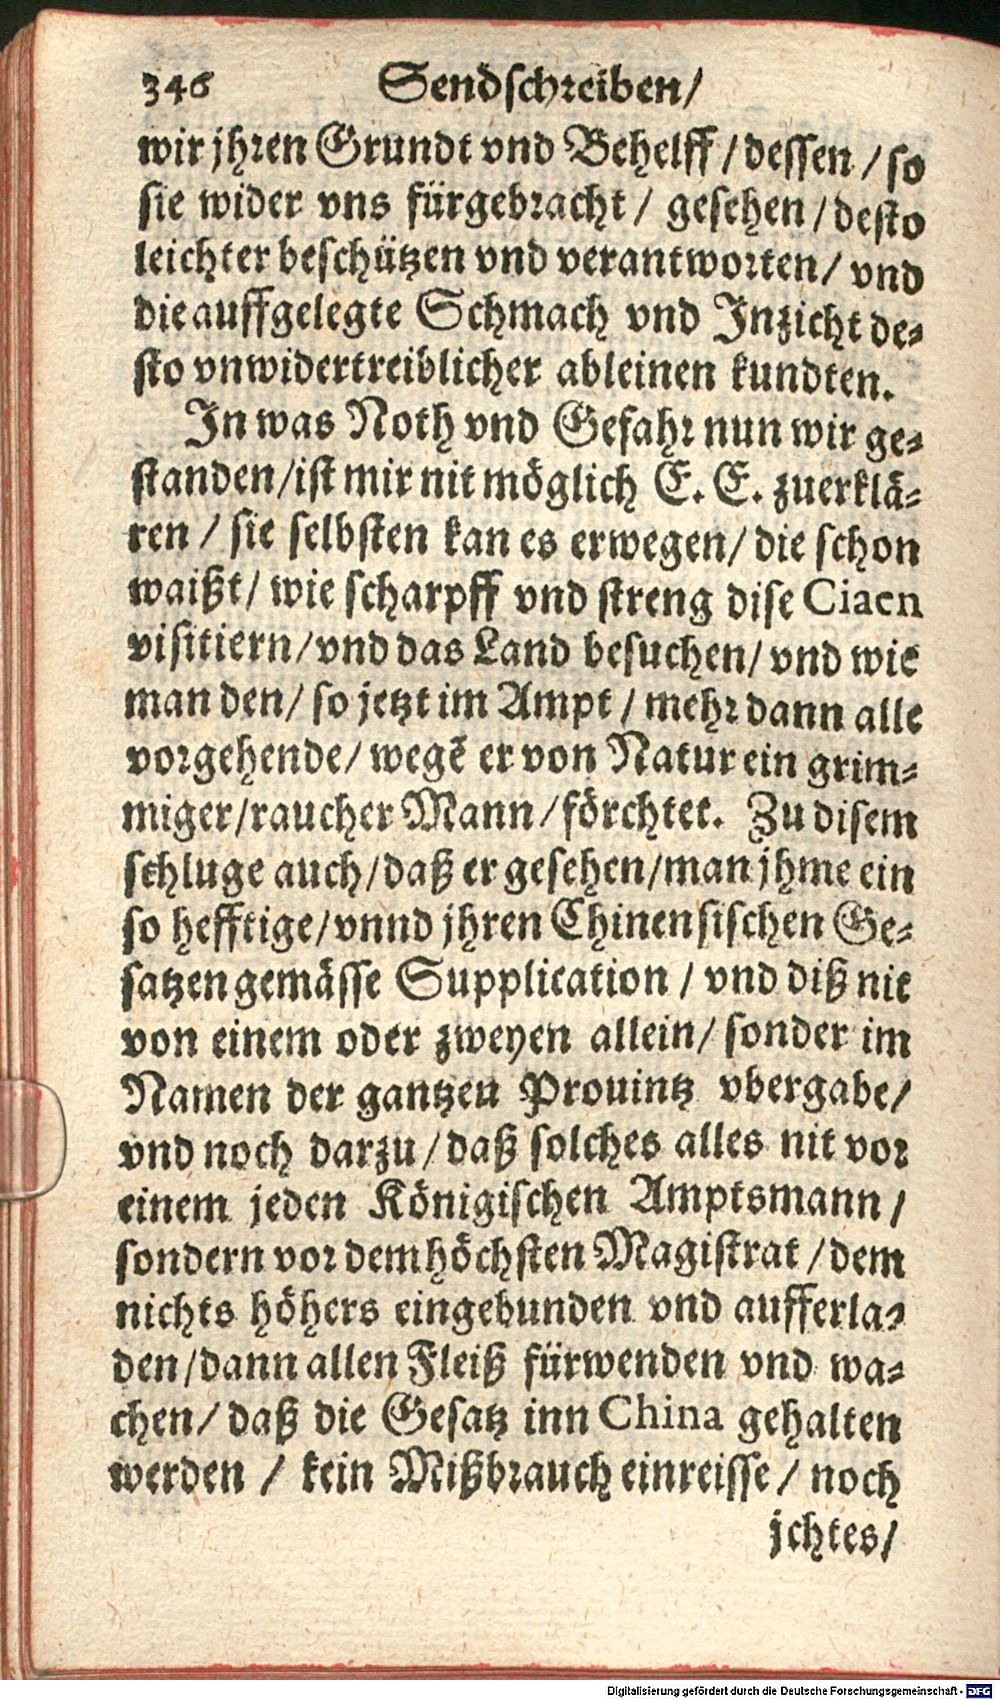 346 Sendschreiben/
wir jhren Grundt vnd Behelff / dessen / so
sie wider vns fürgebracht / gesehen / desto
leichter beschützen vnd verantworten / vnd
die auffgelegte Schmach vnd Inzicht de-
sto vnwidertreiblicher ableinen kundten.
In was Noth vnd Gefahr nun wir ge-
standen / ist mir nit möglich E. E. zuerklä-
ren / sie selbsten kan es erwegen / die schon
waißt / wie scharpff vnd streng dise Ciaen
visitiern / vnd das Land besuchen / vnd wie
man den / so jetzt im Ampt / mehr dann alle
vorgehende / wegē er von Natur ein grim-
miger / raucher Mann / förchtet. Zu disem
schluge auch / daß er gesehen / man jhme ein
so hefftige / vnnd jhren Chinensischen Ge-
satzen gemässe Supplication / vnd diß nit
von einem oder zweyen allein / sonder im
Namen der gantzen Prouintz vbergabe /
vnd noch darzu / daß solches alles nit vor
einem jeden Königischen Amptsmann /
sondern vor dem höchsten Magistrat / dem
nichts höhers eingebunden vnd aufferla-
den / dann allen Fleiß fürwenden vnd wa-
chen / daß die Gesatz inn China gehalten
werden / kein Mißbrauch einreisse / noch
jchtes /
Digitalisierung gefördert durch die Deutsche Forschungsgemeinschaft - DFG